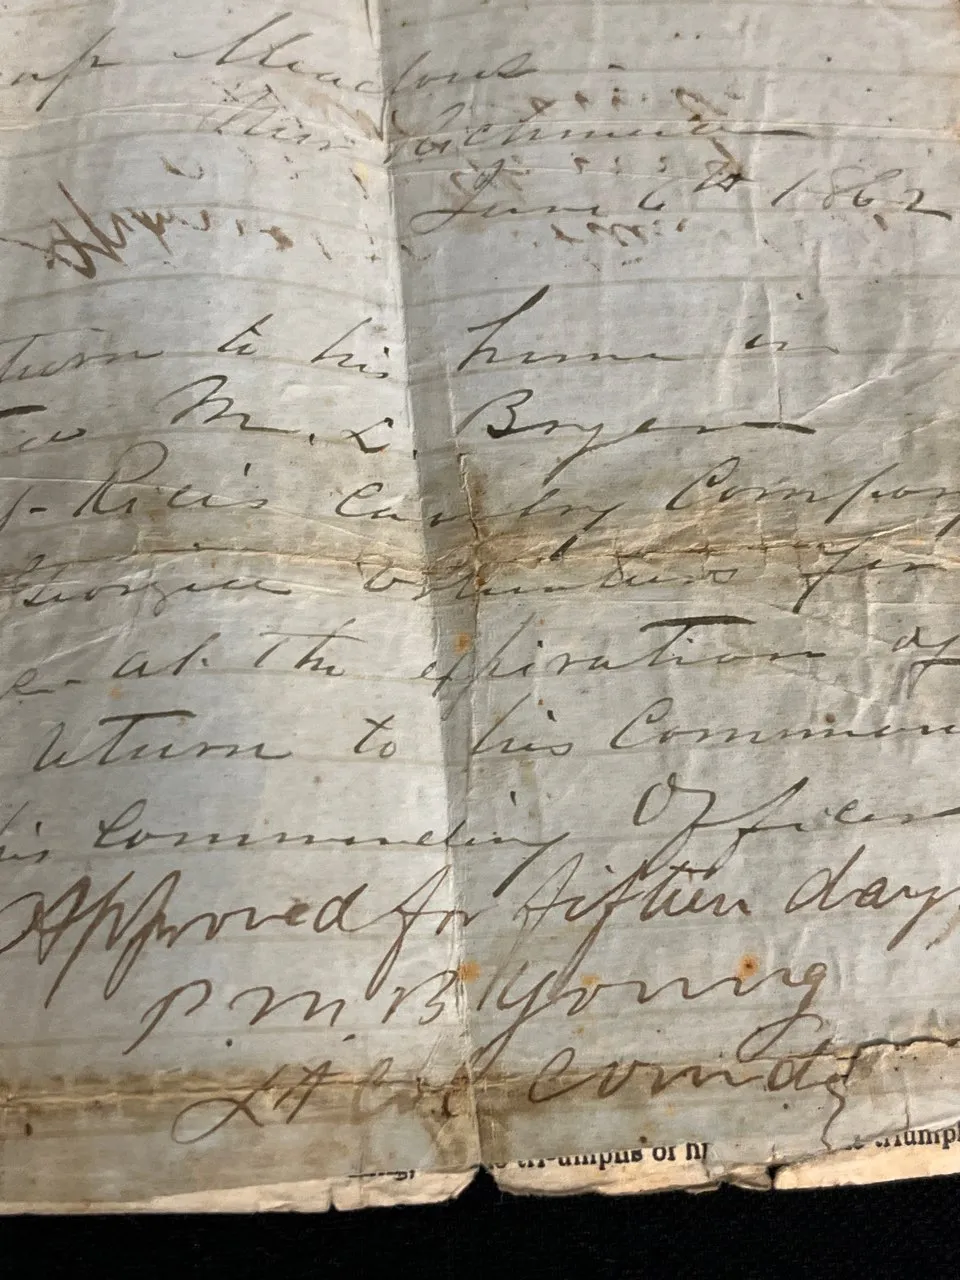 Meadows
Near Richmond
June 6th 1862
turn to his home in
M. L. Bryan
Cavalry Compan
Georgia Volunteers for
at the expiration of
return to his Comman
his Commanding Officer
Approved for fifteen days
P. M. B Young
Lt Col Comdg